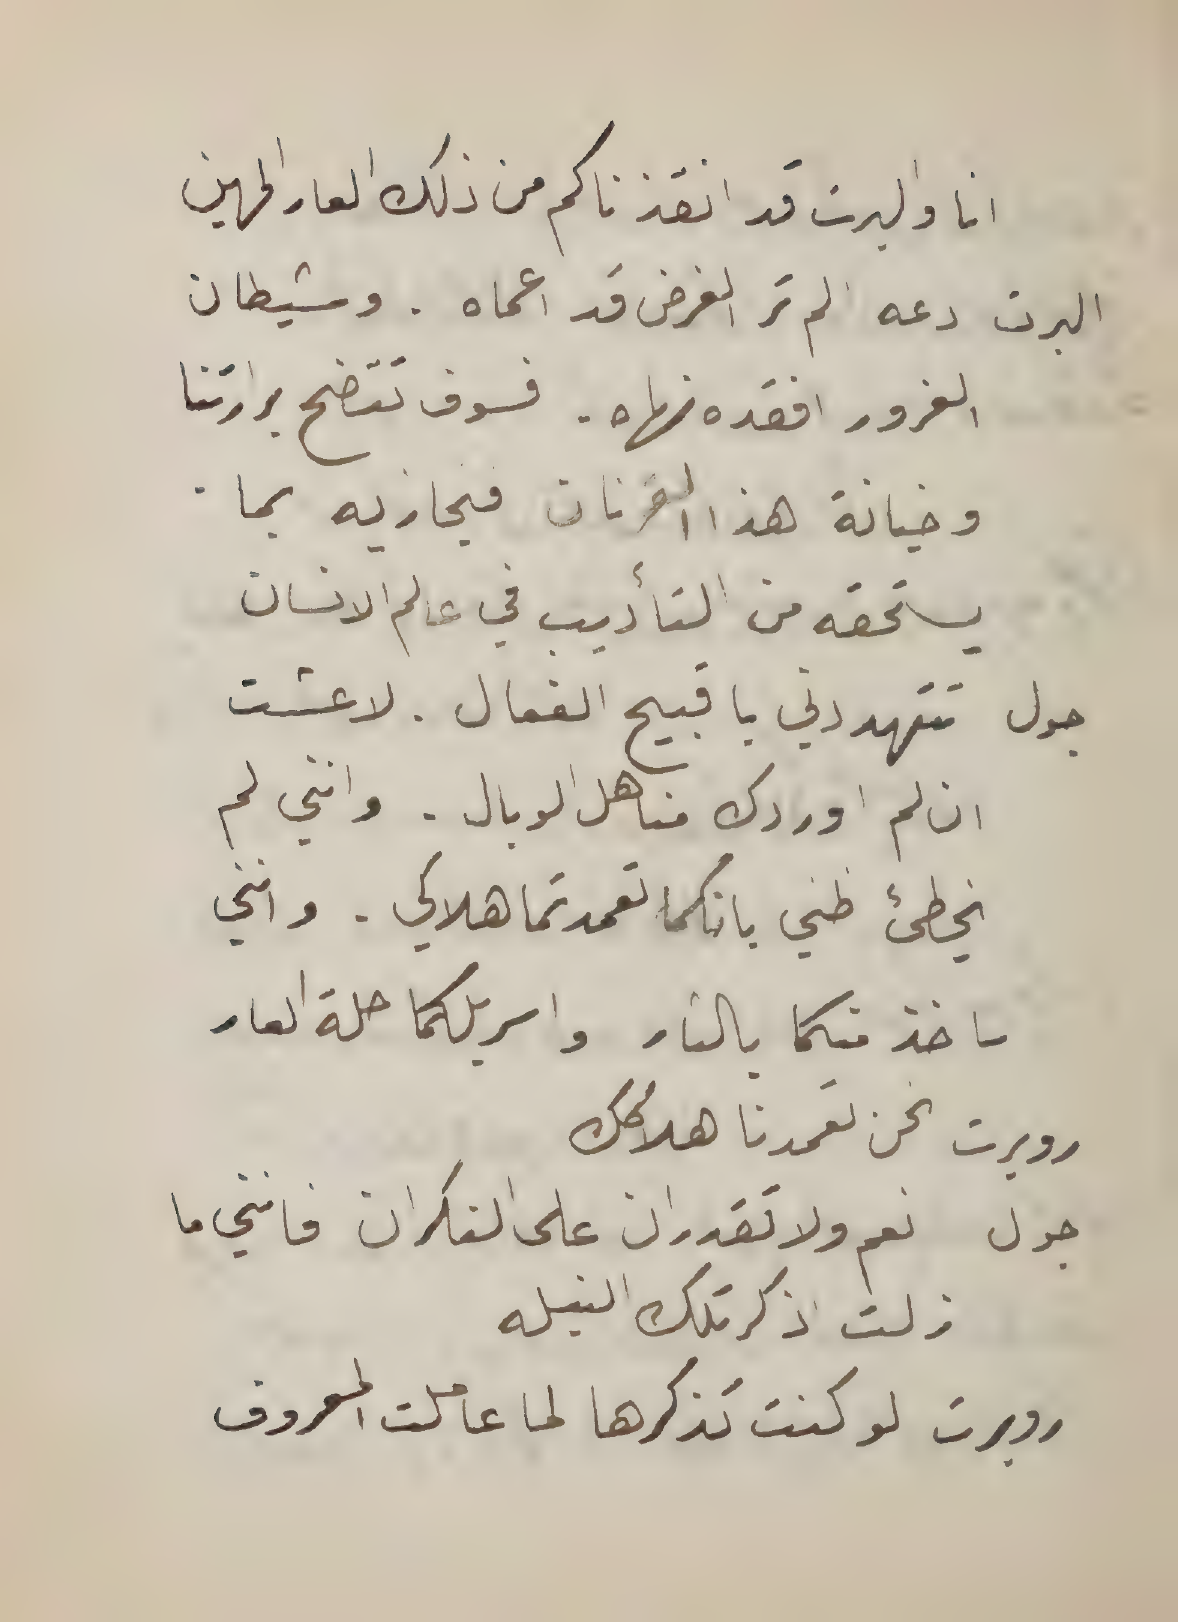 انا والبرت قد انقذناكم من ذلك العار المهين
البرت دعه الم تر الغرض قد اعماه . وشيطان
الغرور افقده نهاه . فسوف تتضح برارتنا
وخيانة هذا القرنان فنجازيه بما
يستحقه من التأديب في عالم الانسان
جول تتهددني يا قبيح الفعال . لا عشت
ان لم اوردك مناهل الوبال . وانني لم
يخطئ ظني بانكما تعمدتما هلاكي . وانني
ساخذ منكما بالثار واسربلكما حلة العار
روبرت نحن تعمدنا هلاكك
جول نعم ولا تقدران على النكران فانني ما
زلت اذكر تلك الليله
روبرت لو كنت تذكرها لما عاملت المعروف